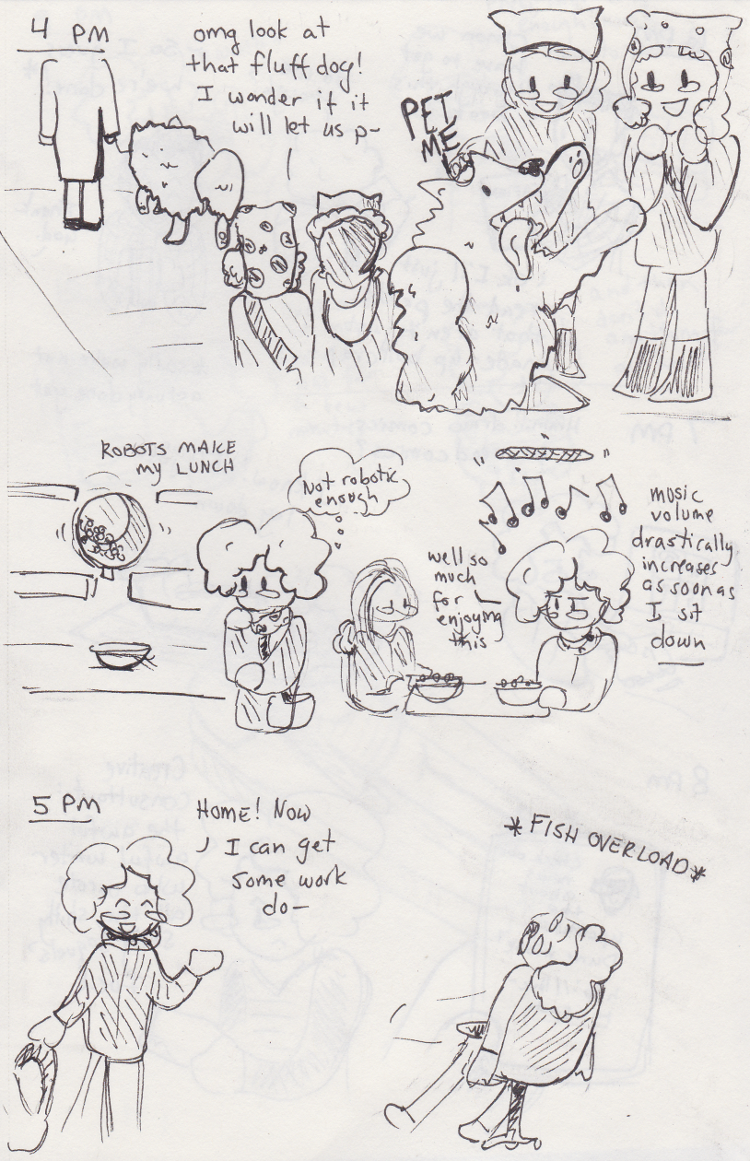 4 PM
omg look at
that fluff dog!
I wonder if it
will let us p-
PET
ME
ROBOTS MAKE
MY LUNCH
Not robotic
enough
well so
much
for
enjoying
this
music
volume
drastically
increases
as soon as
I sit
down
5 PM
HOME! NOW
I can get
some work
do-
*FISH OVERLOAD*